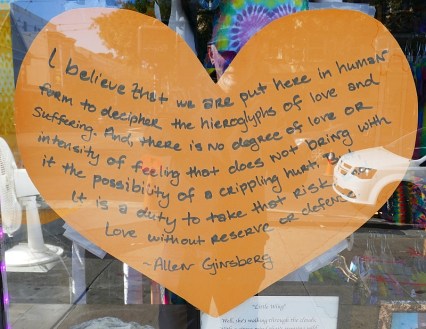 I believe that we are put here in human
form to decipher the hieroglyphs of love and
suffering. And, there is no degree of love or
intensity of feeling that does not bring with
it the possibility of a crippling hurt.
It is a duty to take that risk
Love without reserve or defense
~Allen Ginsberg
"Little Wing"
Well, she's walking through the clouds,